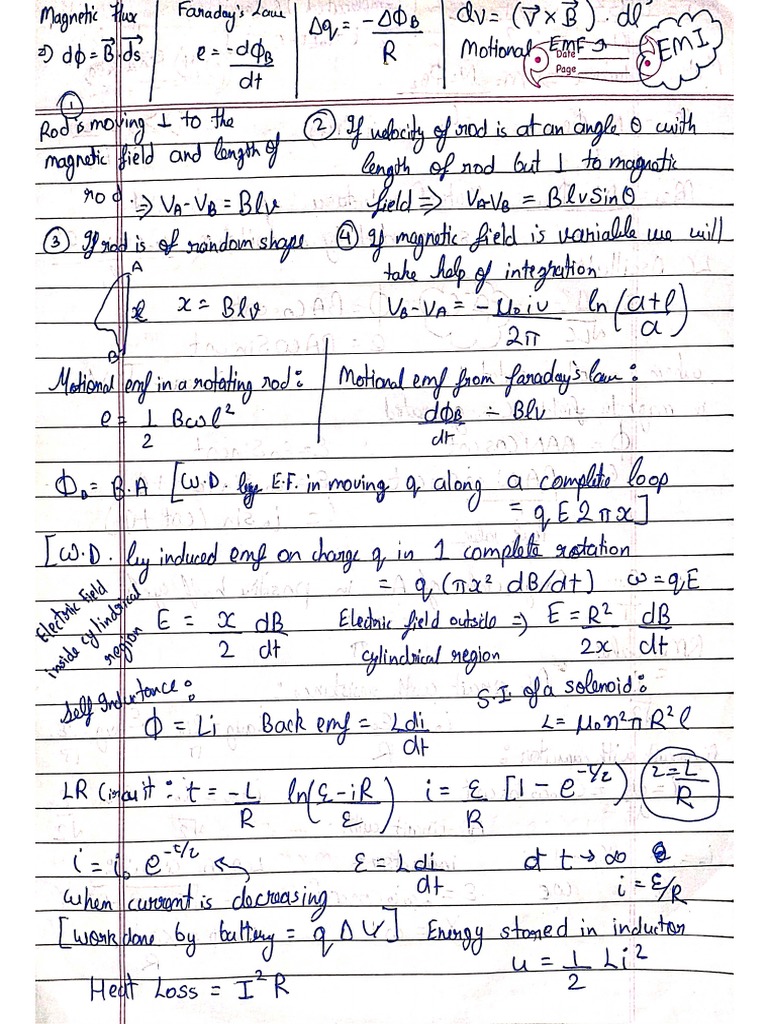 Magnetic Flux
⇒ dϕ = B⃗·d⃗s
Faraday's Law
e = -dϕ_B/dt
Δq = -Δϕ_B/R
dv = (V⃗ × B⃗)·dl
Motional EMF
EMI
Date
Page
① Rod is moving ⊥ to the
magnetic field and length of
rod. ⇒ V_A - V_B = Blv
② If velocity of rod is at an angle θ with
length of rod but ⊥ to magnetic
field ⇒ V_A-V_B = BlvSinθ
③ If rod is of random shape
A
x = Blv
B
④ If magnetic field is variable we will
take help of integration
V_B - V_A = -μ₀iv/2π ln(a+l/a)
Motional emf in a rotating rod:
e = 1/2 Bωl²
Motional emf from faraday's law:
dϕ_B/dt = Blv
ϕ_B = B.A [W.D. by E.F. in moving q along a complete loop
= qE2πx]
[W.D. by induced emf on charge q in 1 complete rotation
= q(πx² dB/dt) ω=qE
Electric field
inside cylindrical
region
E = x/2 dB/dt
Electric field outside ⇒ E = R²/2x dB/dt
cylindrical region
Self Inductance:
ϕ = Li Back emf = Ldi/dt
S.I. of a solenoid:
L = μ₀n²πR²l
LR Circuit: t = -L/R ln(ε-iR/ε) i = ε/R [1 - e^-t/2) 2=L/R
i = i₀ e^-t/2 ε = Ldi/dt at t→∞
i = ε/R
when current is decreasing
[work done by battery = qΔV] Energy stored in inductor
u = 1/2 Li²
Heat Loss = I²R